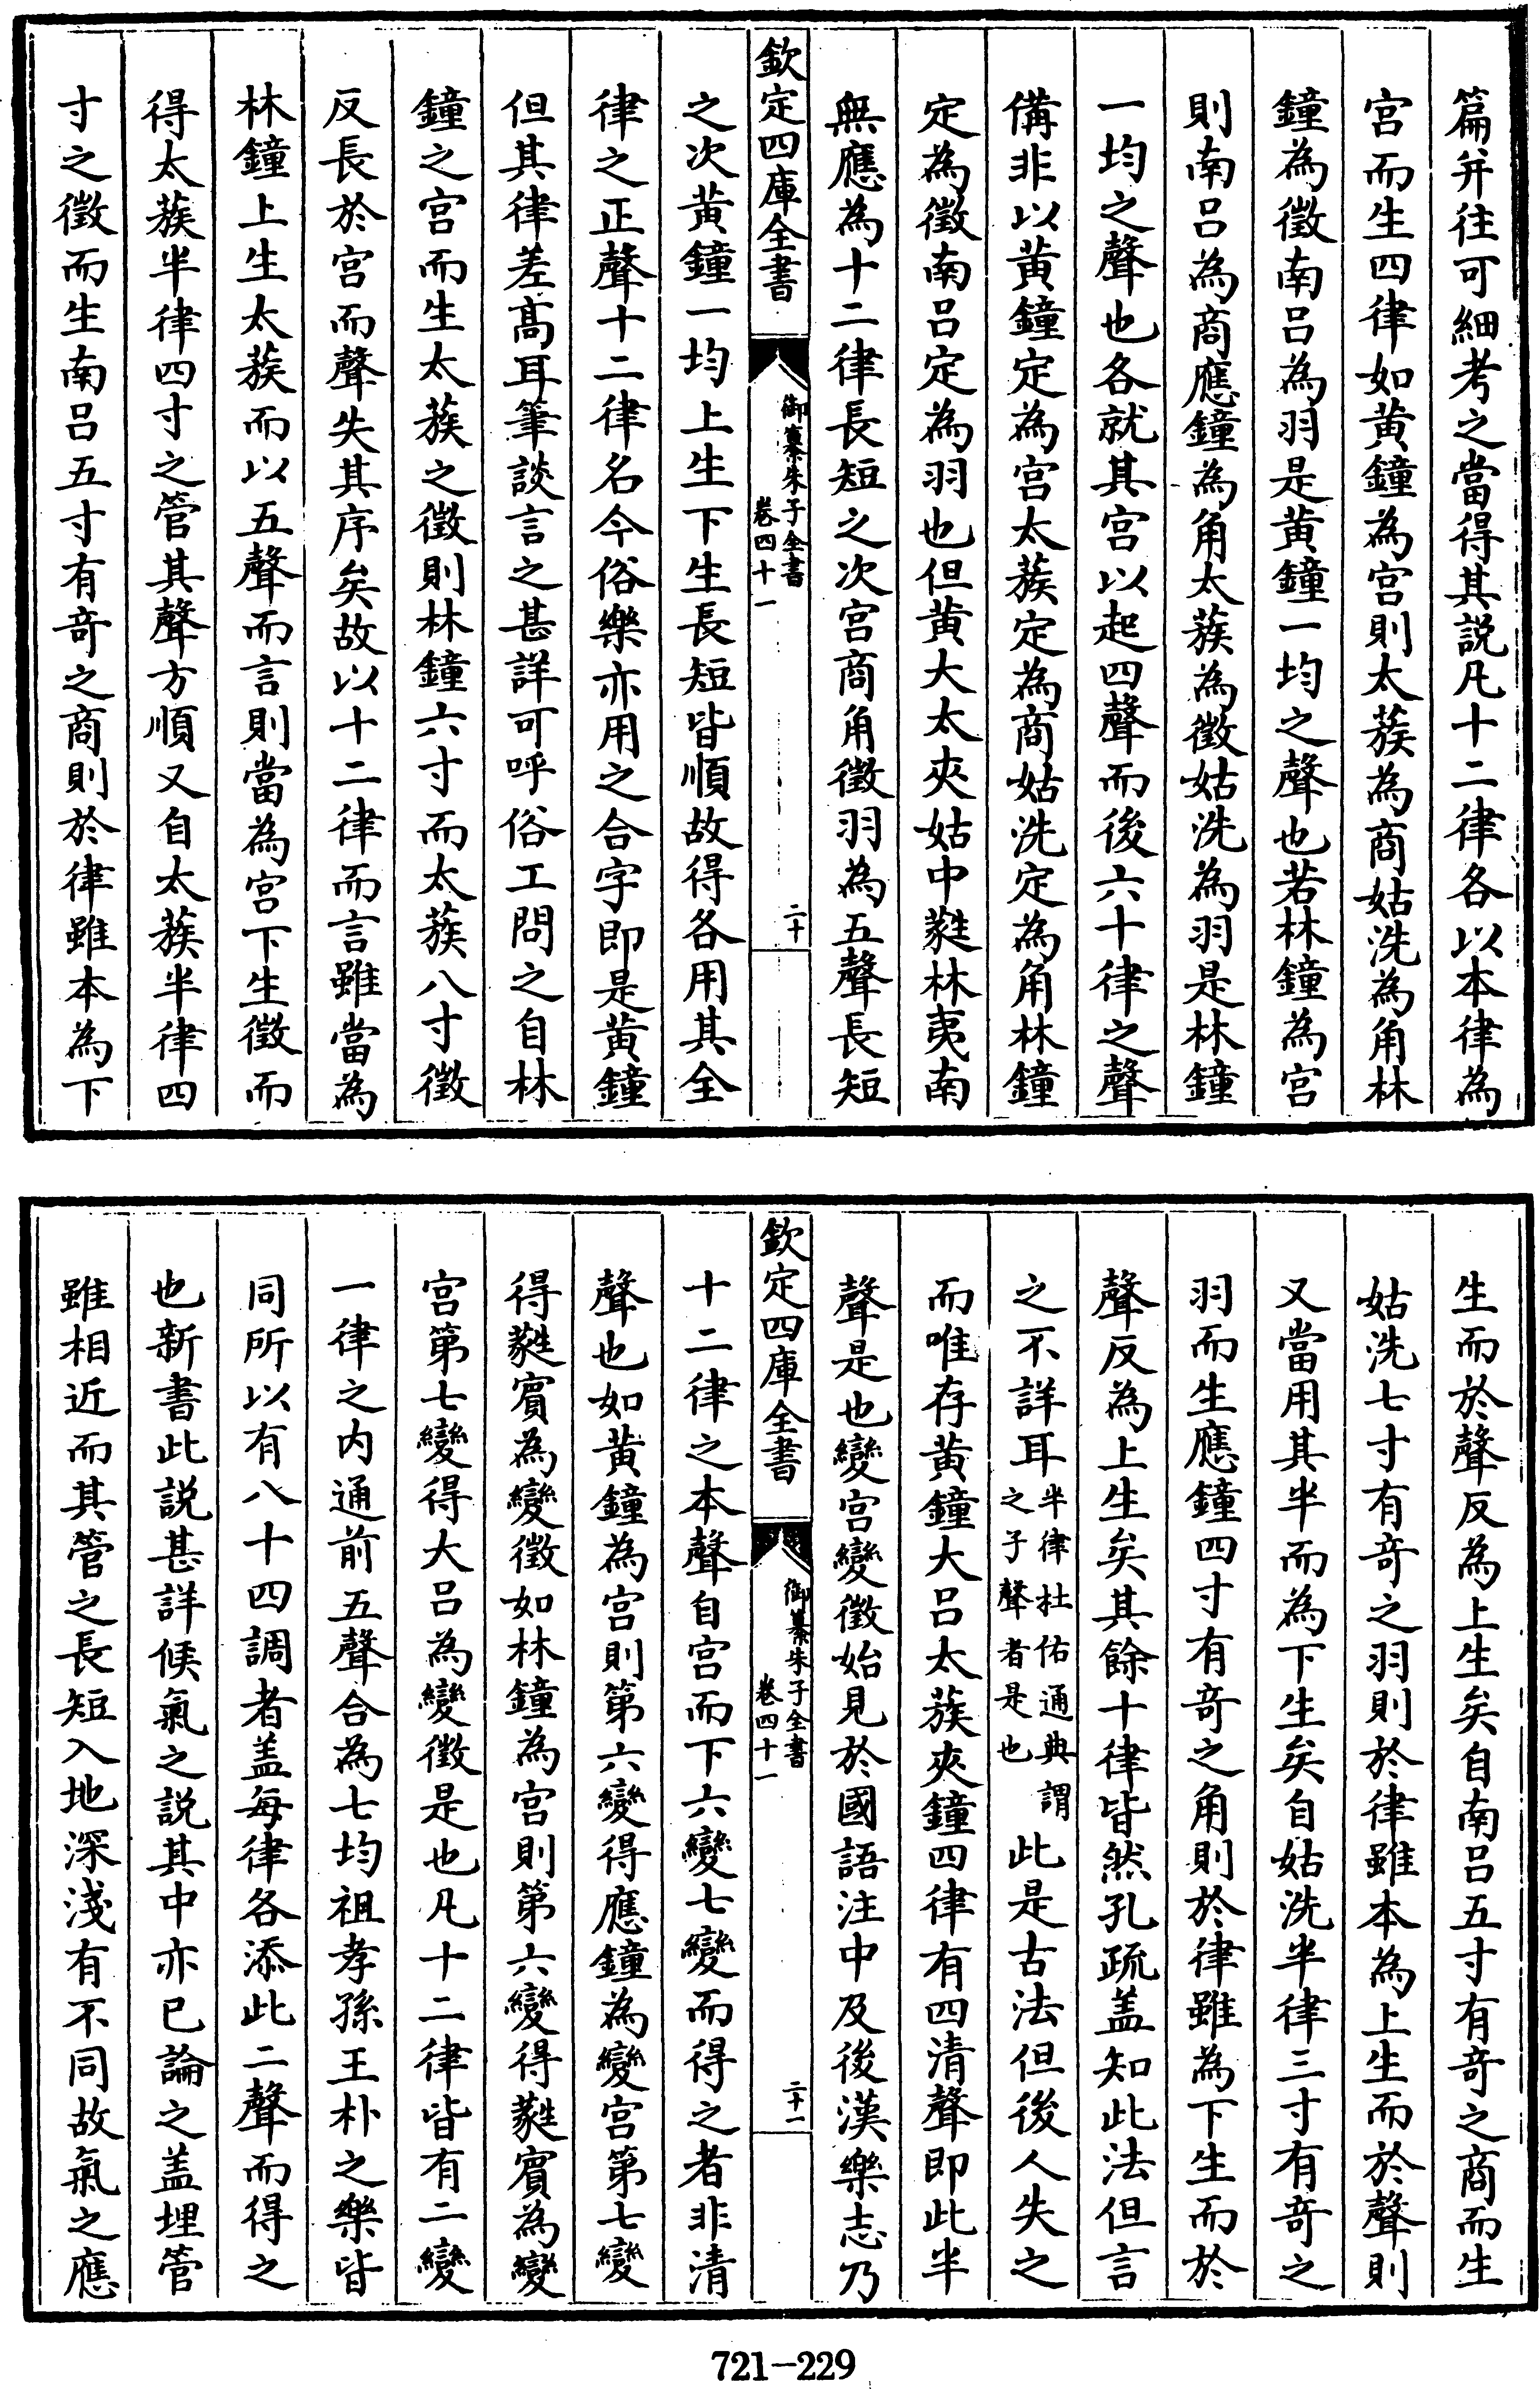 篇并往可細考之當得其説凡十二律各以本律為
宫而生四律如黄鐘為宫則太蔟為商姑洗為角林
鐘為徵南吕為羽是黄鐘一均之聲也若林鐘為宫
則南吕為商應鐘為角太蔟為徵姑洗為羽是林鐘
一均之聲也各就其宫以起四聲而後六十律之聲
備非以黄鐘定為宫太蔟定為商姑洗定為角林鐘
定為徵南吕定為羽也但黄大太夾姑中蕤林夷南
無應為十二律長短之次宫商角徵羽為五聲長短
欽定四庫全書
御纂朱子全書
卷四十一
二十
之次黄鐘一均上生下生長短皆順故得各用其全
律之正聲十二律名今俗樂亦用之合字即是黄鐘
但其律差髙耳筆談言之甚詳可呼俗工問之自林
鐘之宫而生太蔟之徵則林鐘六寸而太蔟八寸徵
反長於宫而聲失其序矣故以十二律而言雖當為
林鐘上生太蔟而以五聲而言則當為宫下生徵而
得太蔟半律四寸之管其聲方順又自太蔟半律四
寸之徵而生南吕五寸有竒之商則於律雖本為下
生而於聲反為上生矣自南吕五寸有竒之商而生
姑洗七寸有竒之羽則於律雖本為上生而於聲則
又當用其半而為下生矣自姑洗半律三寸有竒之
羽而生應鐘四寸有竒之角則於律雖為下生而於
聲反為上生矣其餘十律皆然孔疏盖知此法但言
之不詳耳半律杜佑通典謂之子聲者是也此是古法但後人失之
而唯存黄鐘大吕太蔟夾鐘四律有四清聲即此半
聲是也變宫變徵始見於國語注中及後漢樂志乃
欽定四庫全書
御纂朱子全書
卷四十一
二十一
十二律之本聲自宫而下六變七變而得之者非清
聲也如黄鐘為宫則第六變得應鐘為變宫第七變
得蕤賓為變徵如林鐘為宫則第六變得蕤賓為變
宫第七變得大吕為變徵是也凡十二律皆有二變
一律之内通前五聲合為七均祖孝孫王朴之樂皆
同所以有八十四調者盖每律各添此二聲而得之
也新書此説甚詳候氣之説其中亦已論之盖埋管
雖相近而其管之長短入地深淺有不同故氣之應
721-229